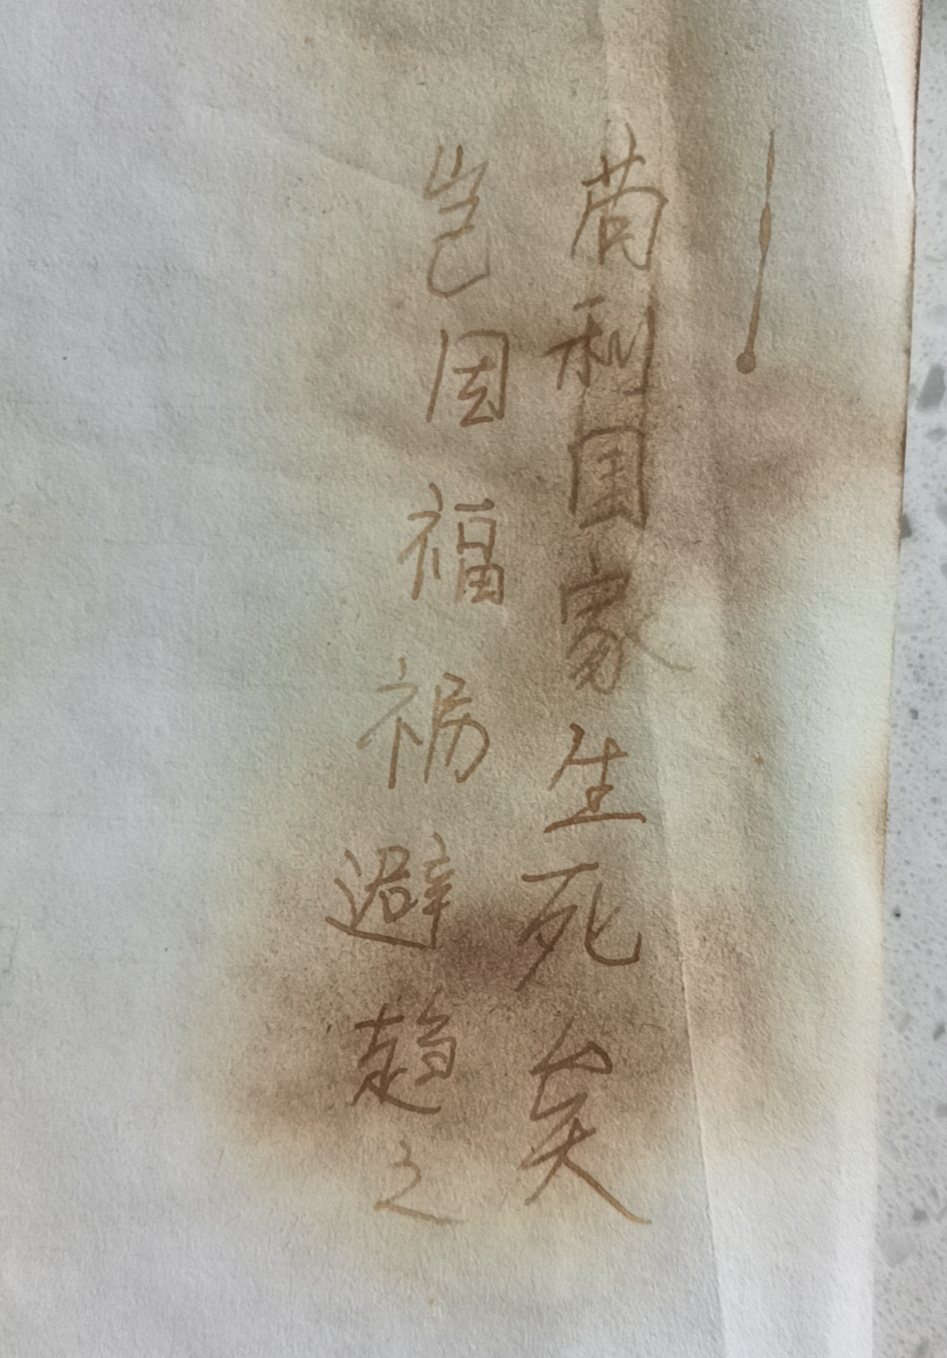 苟利国家生死矣
岂因福祸避趋之